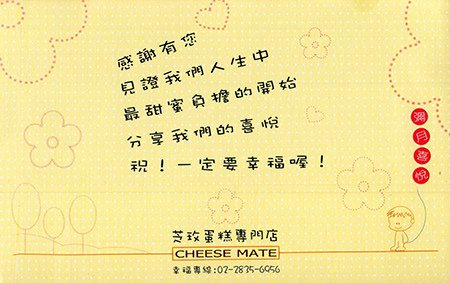 感謝有您
見證我們人生中
最甜蜜負擔的開始
分享我們的喜悅
祝！一定要幸福喔！
彌月喜悅
芝玫蛋糕專門店
CHEESE MATE
幸福專線:02-2835-6956